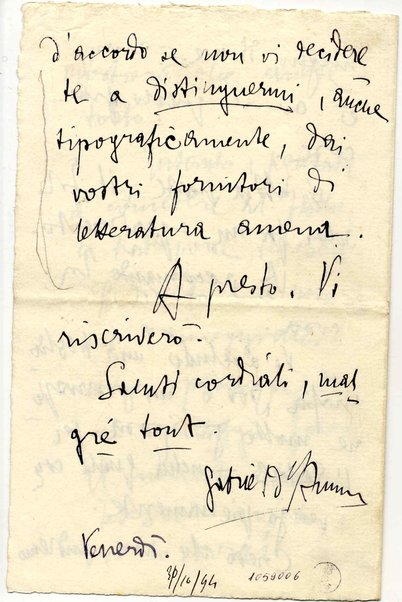 d'accordo se non vi decidere
te a distinguermi, anche
tipograficamente, dai
vostri fornitori di
letteratura amena.
A presto. Vi
riscriverò.
Saluti cordiali, mal
gré tout.
Gabriel d'Annun
Venerdì.
30/10/94
1059006